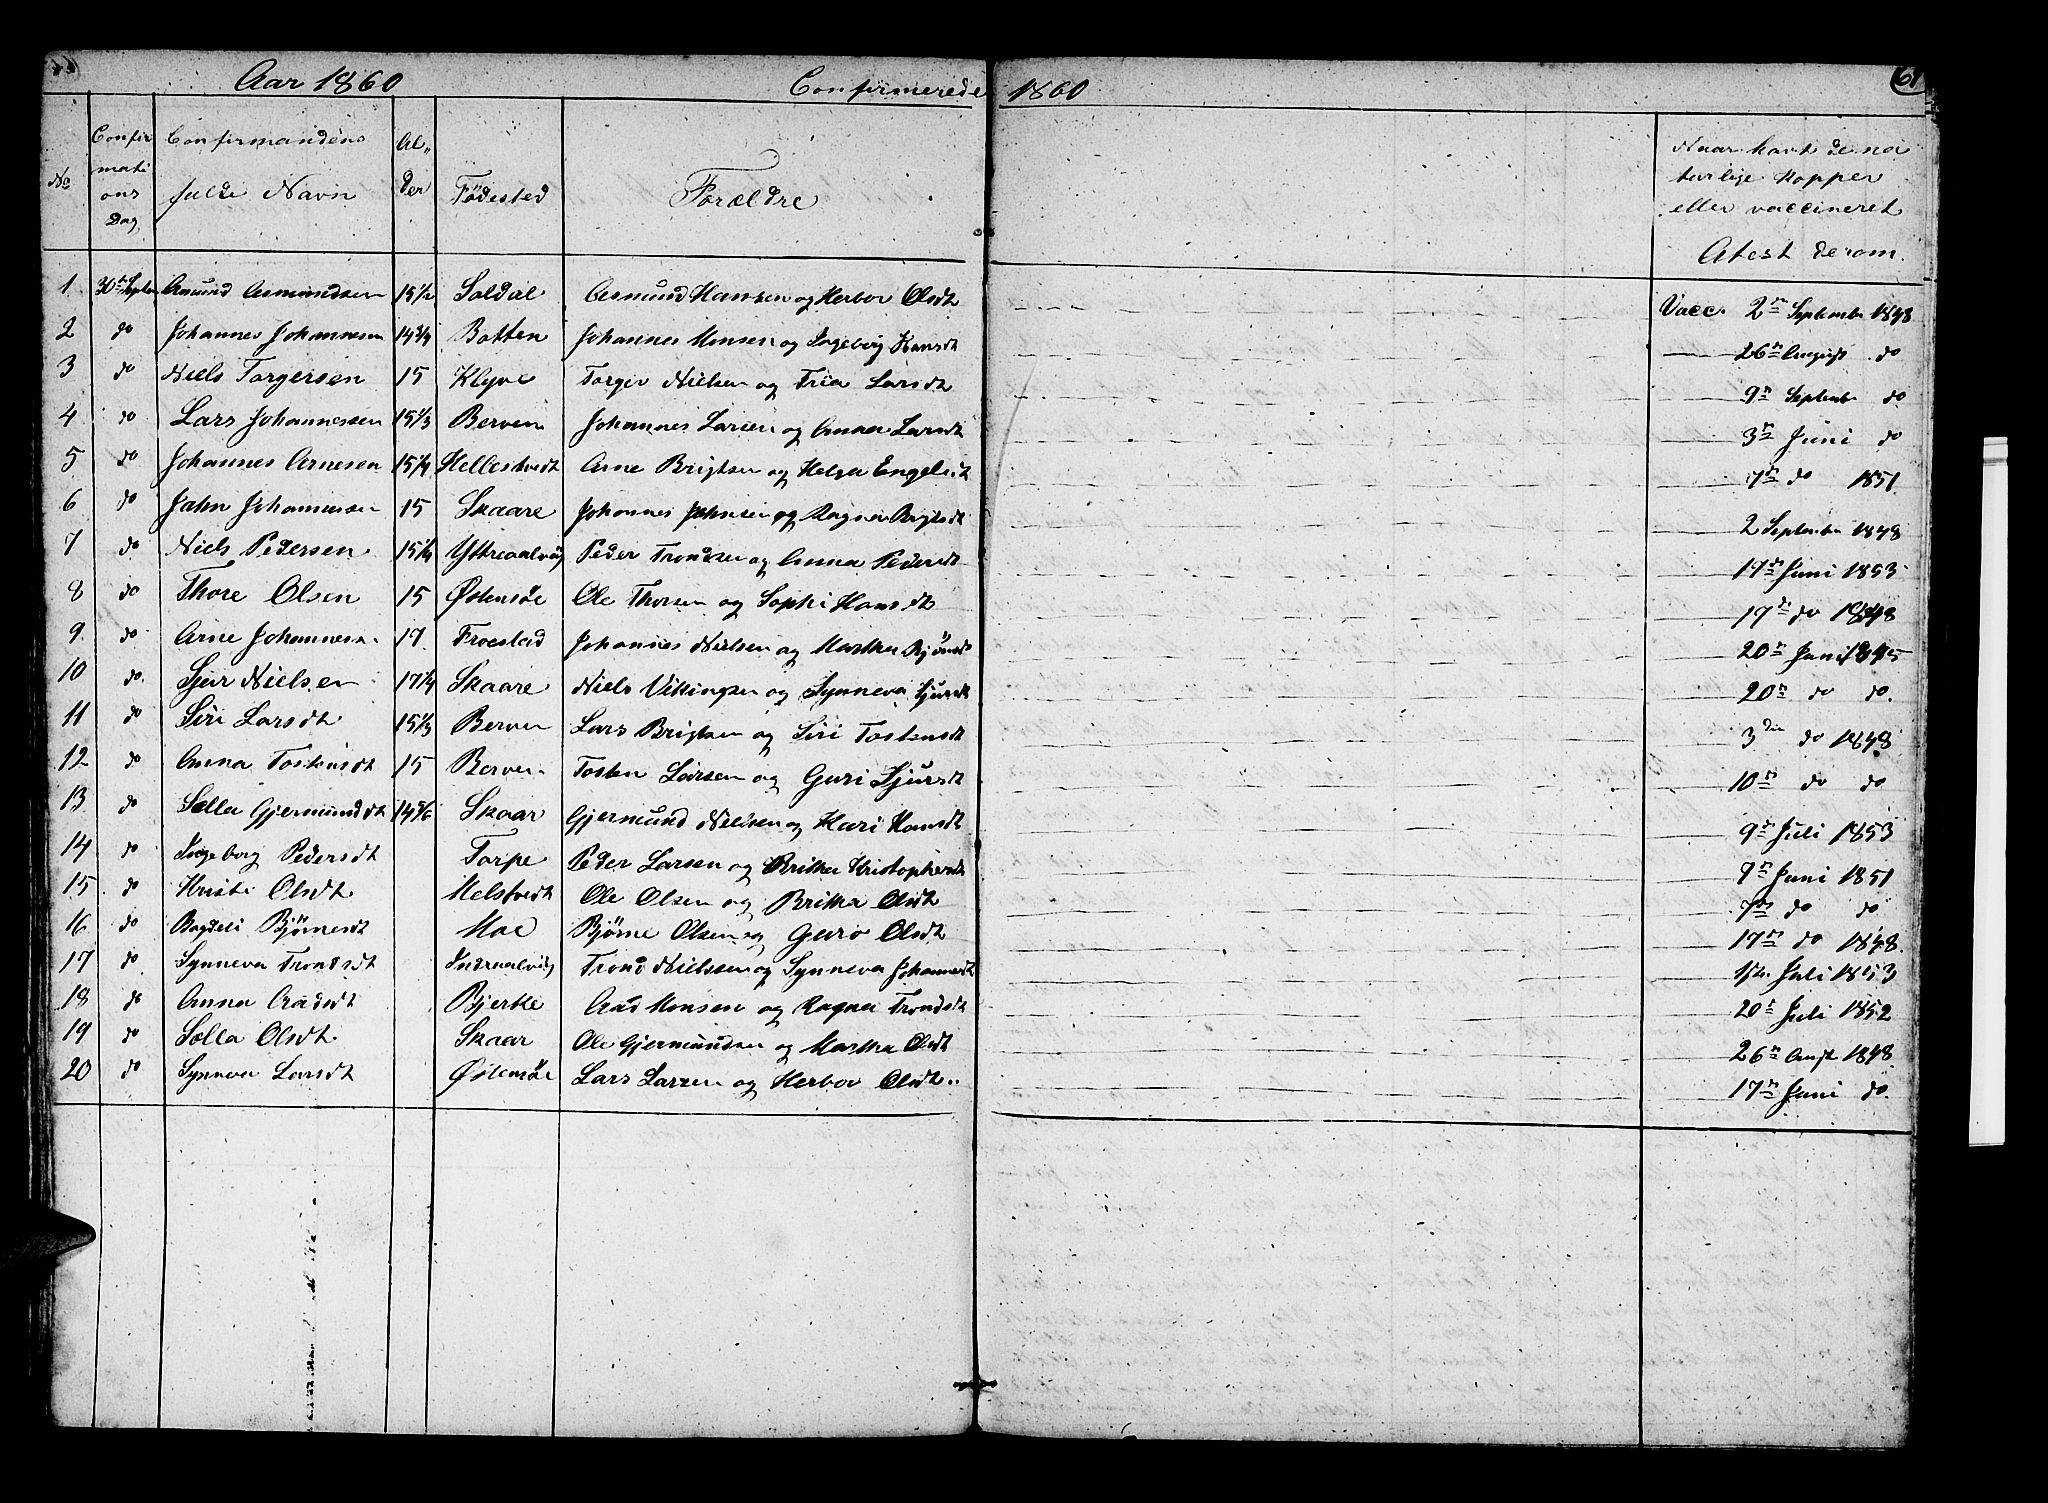 Aar 1860 Confirmerede 1860 61
No Confirmations Dag Confirmandens fulde Navn Alder Födested Forældre Naar havt de naturlige Kopper eller vaccineret Atest derom.
1 30te Septbr Asmund Asmundsen 15 1/2 Soldal Asmund Hansen og Herbor Olsdt Vacc. 2den September 1848
2 do Johannes Johannesen 14 3/4 Botten Johannes Monsen og Ingeborg Hansdt 26de August do
3 do Niels Torgersen 15 Klyve Torger Nielsen og Larsdt 9de September do
4 do Lars Johannessen 15 1/3 Berven Johannes Larsen og Anna Larsdt 3de Juni do
5 do Johannes Arnesen 15 1/4 Hellestvedt Arne Brigtsen og Helga Engelsdt 7de do 1851
6 do John Johannessen 15 Skaare Johannes Johnsen og Ragna Brigtsdt 2 September 1848
7 do Niels Pedersen 15 1/4 Yttreaalvig Peder Trondsen og Anna Pedersdt 17de Juni 1853
8 do Thore Olsen 15 Östensöe Ole Thorsen og Sophi Hansdt 17de do 1848
9 do Arne Johannessen 17 Froestad Johannes Nielsen og Martha Björnsdt 20de Juni 1845
10 do Sjur Nielsen 17 1/4 Skaare Niels Vikingsen og Synneva Sjursdt 20de do do
11 do Siri Larsdt 15 1/3 Berven Lars Brigtsen og Siri Tostensdt 3die do 1848
12 do Anna Tostensdt 15 Berven Tosten Larsen og Guri Sjursdt 10de do do
13 do Sella Gjermundsdt 14 5/6 Skaar Gjermund Nielsen og Kari Hansdt 9de Juli 1853
14 do Ingeborg Pedersdt Torpe Peder Larsen og Britha Kristophersdt 7de Juni 1851
15 do Kristi Olsdt Melstvedt Ole Olsen og Britha Olsdt 7de do do
16 do Bagdeli Björnesdt Moe Björne Olsen og Guro Olsdt 17de do 1848
17 do Synneva Trondsdt Indreaalvig Trond Nielssen og Synneva Johannesdt Juli 1853
18 do Anna Aadsdt Bjerke Aad Monsen og Ragna Trondsdt 20de Juli 1852
19 do Sella Olsdt Skaar Ole Gjermundsen og Martha Olsdt 26de Augst 1848
20 do Synneva Larsdt Östensöe Lars Larsen og Herbor Olsdt 17de Juni do